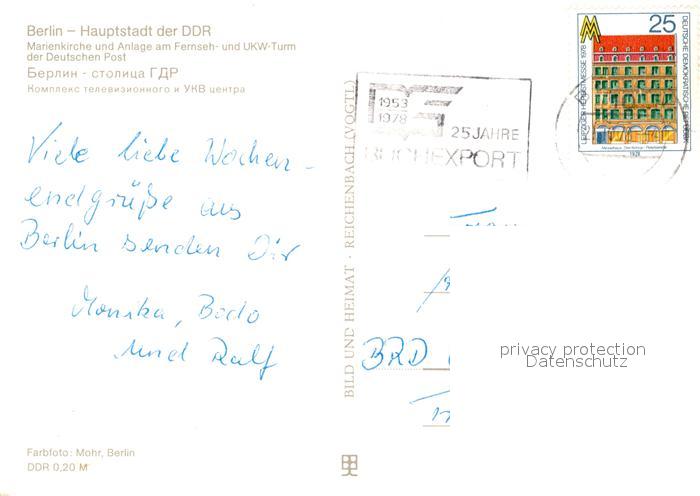 Berlin – Hauptstadt der DDR
Marienkirche und Anlage am Fernseh- und UKW-Turm
der Deutschen Post
Берлин - столица ГДР
Комплекс телевизионного и УКВ центра
Viele liebe Wochen-
endgrüße aus
Berlin senden Dir
Monika, Bodo
und Ralf
Farbfoto: Mohr, Berlin
DDR 0,20 M
BILD UND HEIMAT · REICHENBACH (VOGTL)
1953
1978
25 JAHRE
BUCHEXPORT
25
LEIPZIGER HERBSTMESSE 1978
DEUTSCHE DEMOKRATISCHE REPUBLIK
1978
BRD
privacy protection
Datenschutz